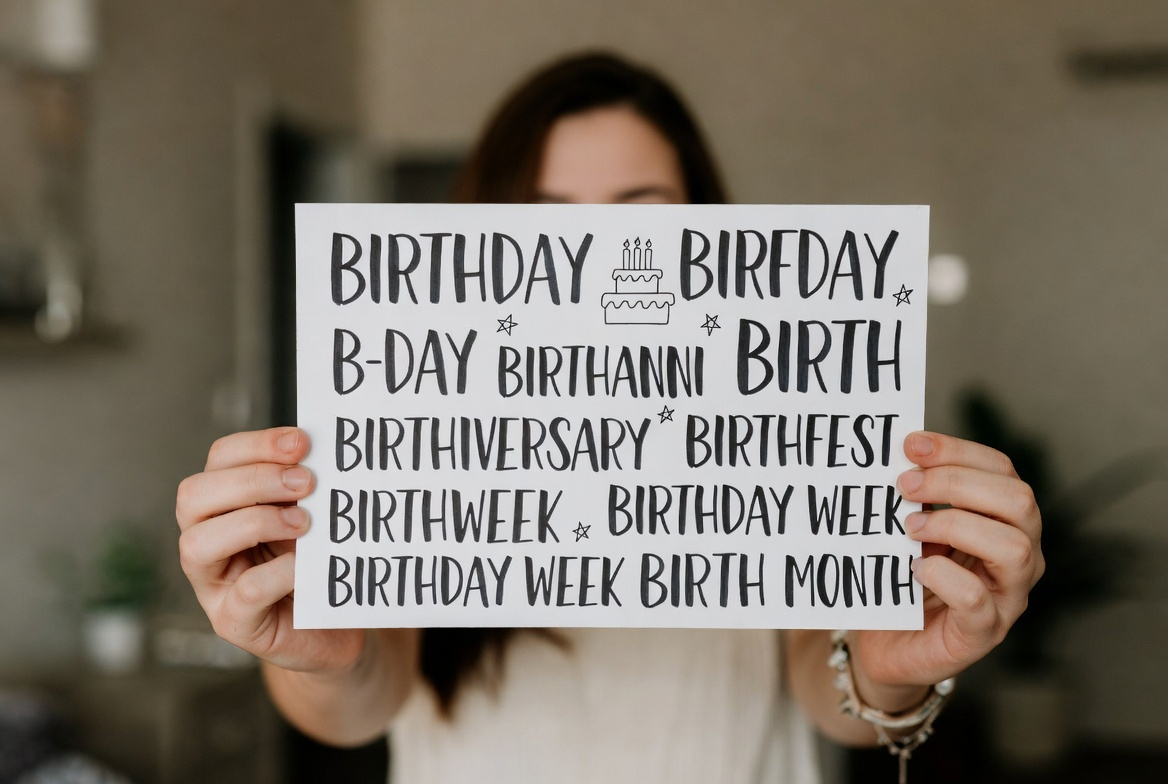 BIRTHDAY BIRFDAY
B-DAY BIRTHANNI BIRTH
BIRTHIVERSARY BIRTHFEST
BIRTHWEEK BIRTHDAY WEEK
BIRTHDAY WEEK BIRTH MONTH